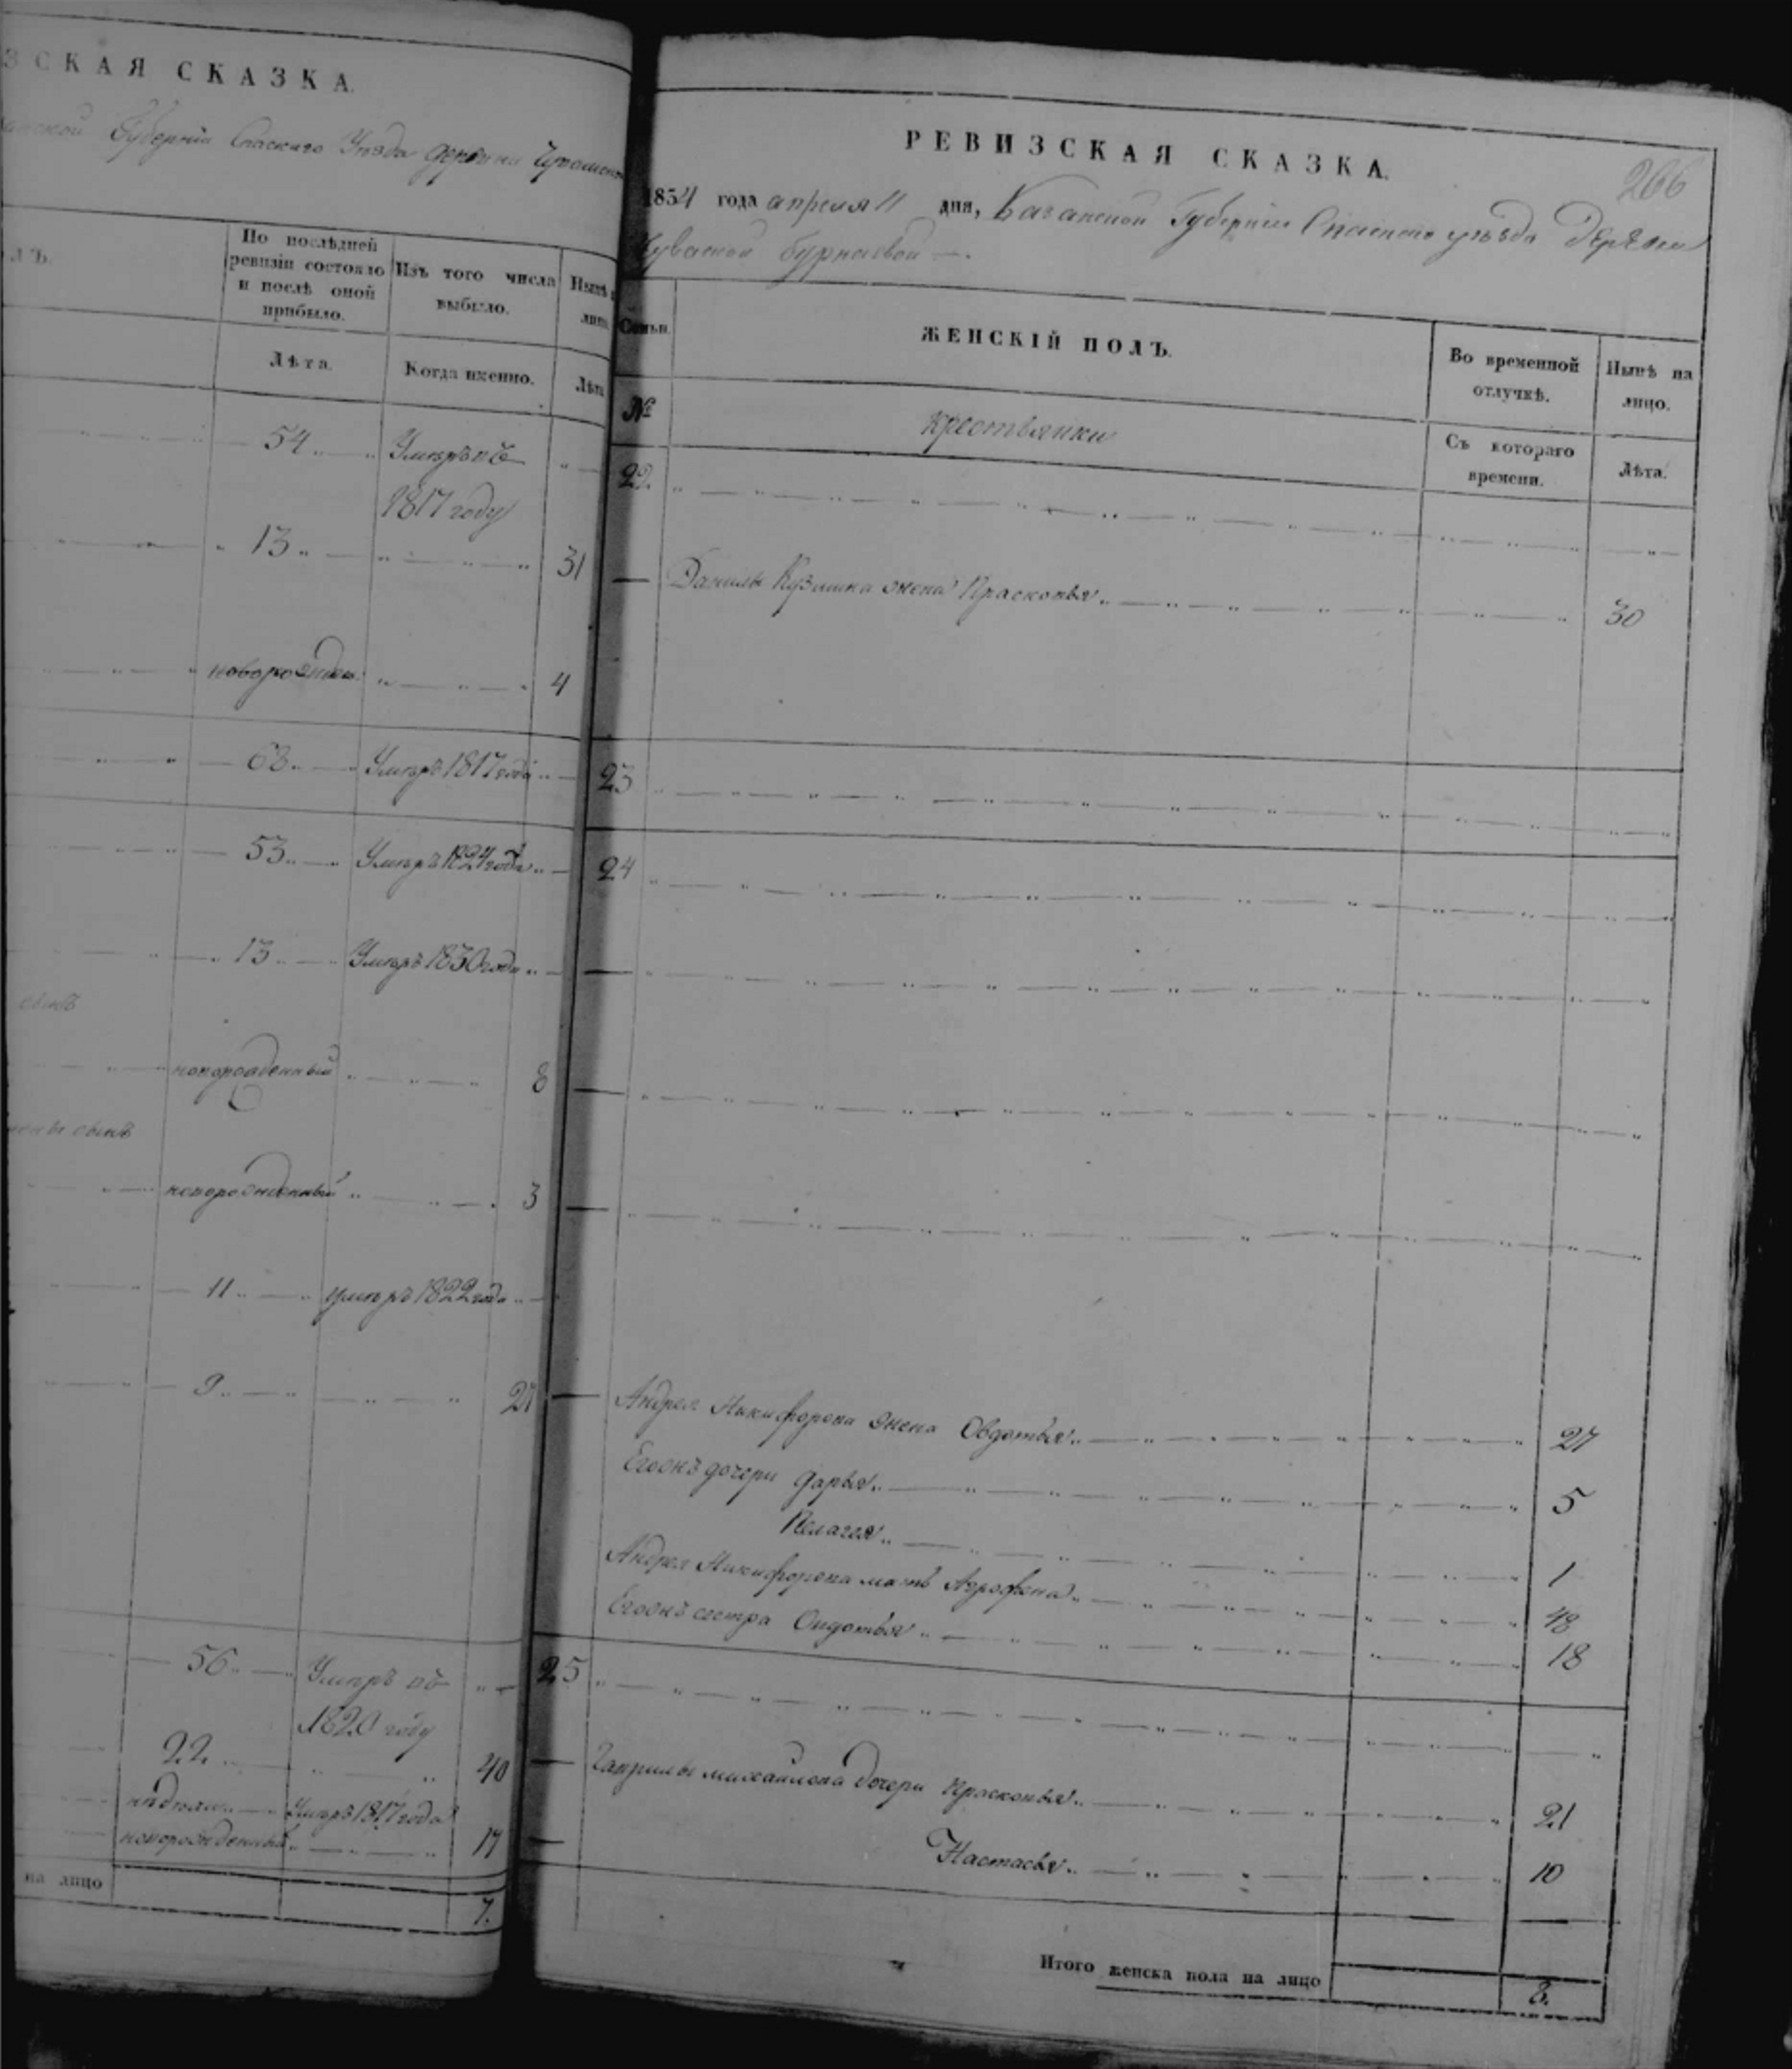 ЗСКАЯ СКАЗКА.
Губернiи Спаскаго Уѣзда деревни
ЛЪ.
По послѣдней ревизiи состояло и послѣ оной прибыло.
Изъ того числа выбыло.
Нынѣ
лицо
Лѣта.
Когда именно.
Лѣта
54 Умеръ въ
1817 году
13 31
новорожден. 4
63 Умеръ 1817 года
53 Умеръ 1824 года
13 Умеръ 1830 года
сынъ
новорожденный 8
сынъ
новорожденный 3
11 умеръ 1822 года
9 27
56 Умеръ въ
1820 году
22 40
Умеръ 1817 года
новорожденный 17
на лицо 7.
РЕВИЗСКАЯ СКАЗКА.
266
1834 года апреля 11 дня, Казанской Губернiи Спаскаго уѣзда Деревни
Чуваской бурнаевой
Семьи.
ЖЕНСКIЙ ПОЛЪ.
Во временной отлучкѣ.
Нынѣ на лицо.
№
крестьянки
Съ котораго времени.
Лѣта.
22.
Данилы Кузмина жена Прасковья 30
23
24
Андрея Никифорова жена Овдотья 27
Егоонъ дочери дарья 5
Пелагея 1
Андрея Никифорова мать Аграфена 48
Егоонъ сестра Овдотья 18
25
Гаврилы михаилова дочери Прасковья 21
Настасья 10
Итого женска пола на лицо 8.